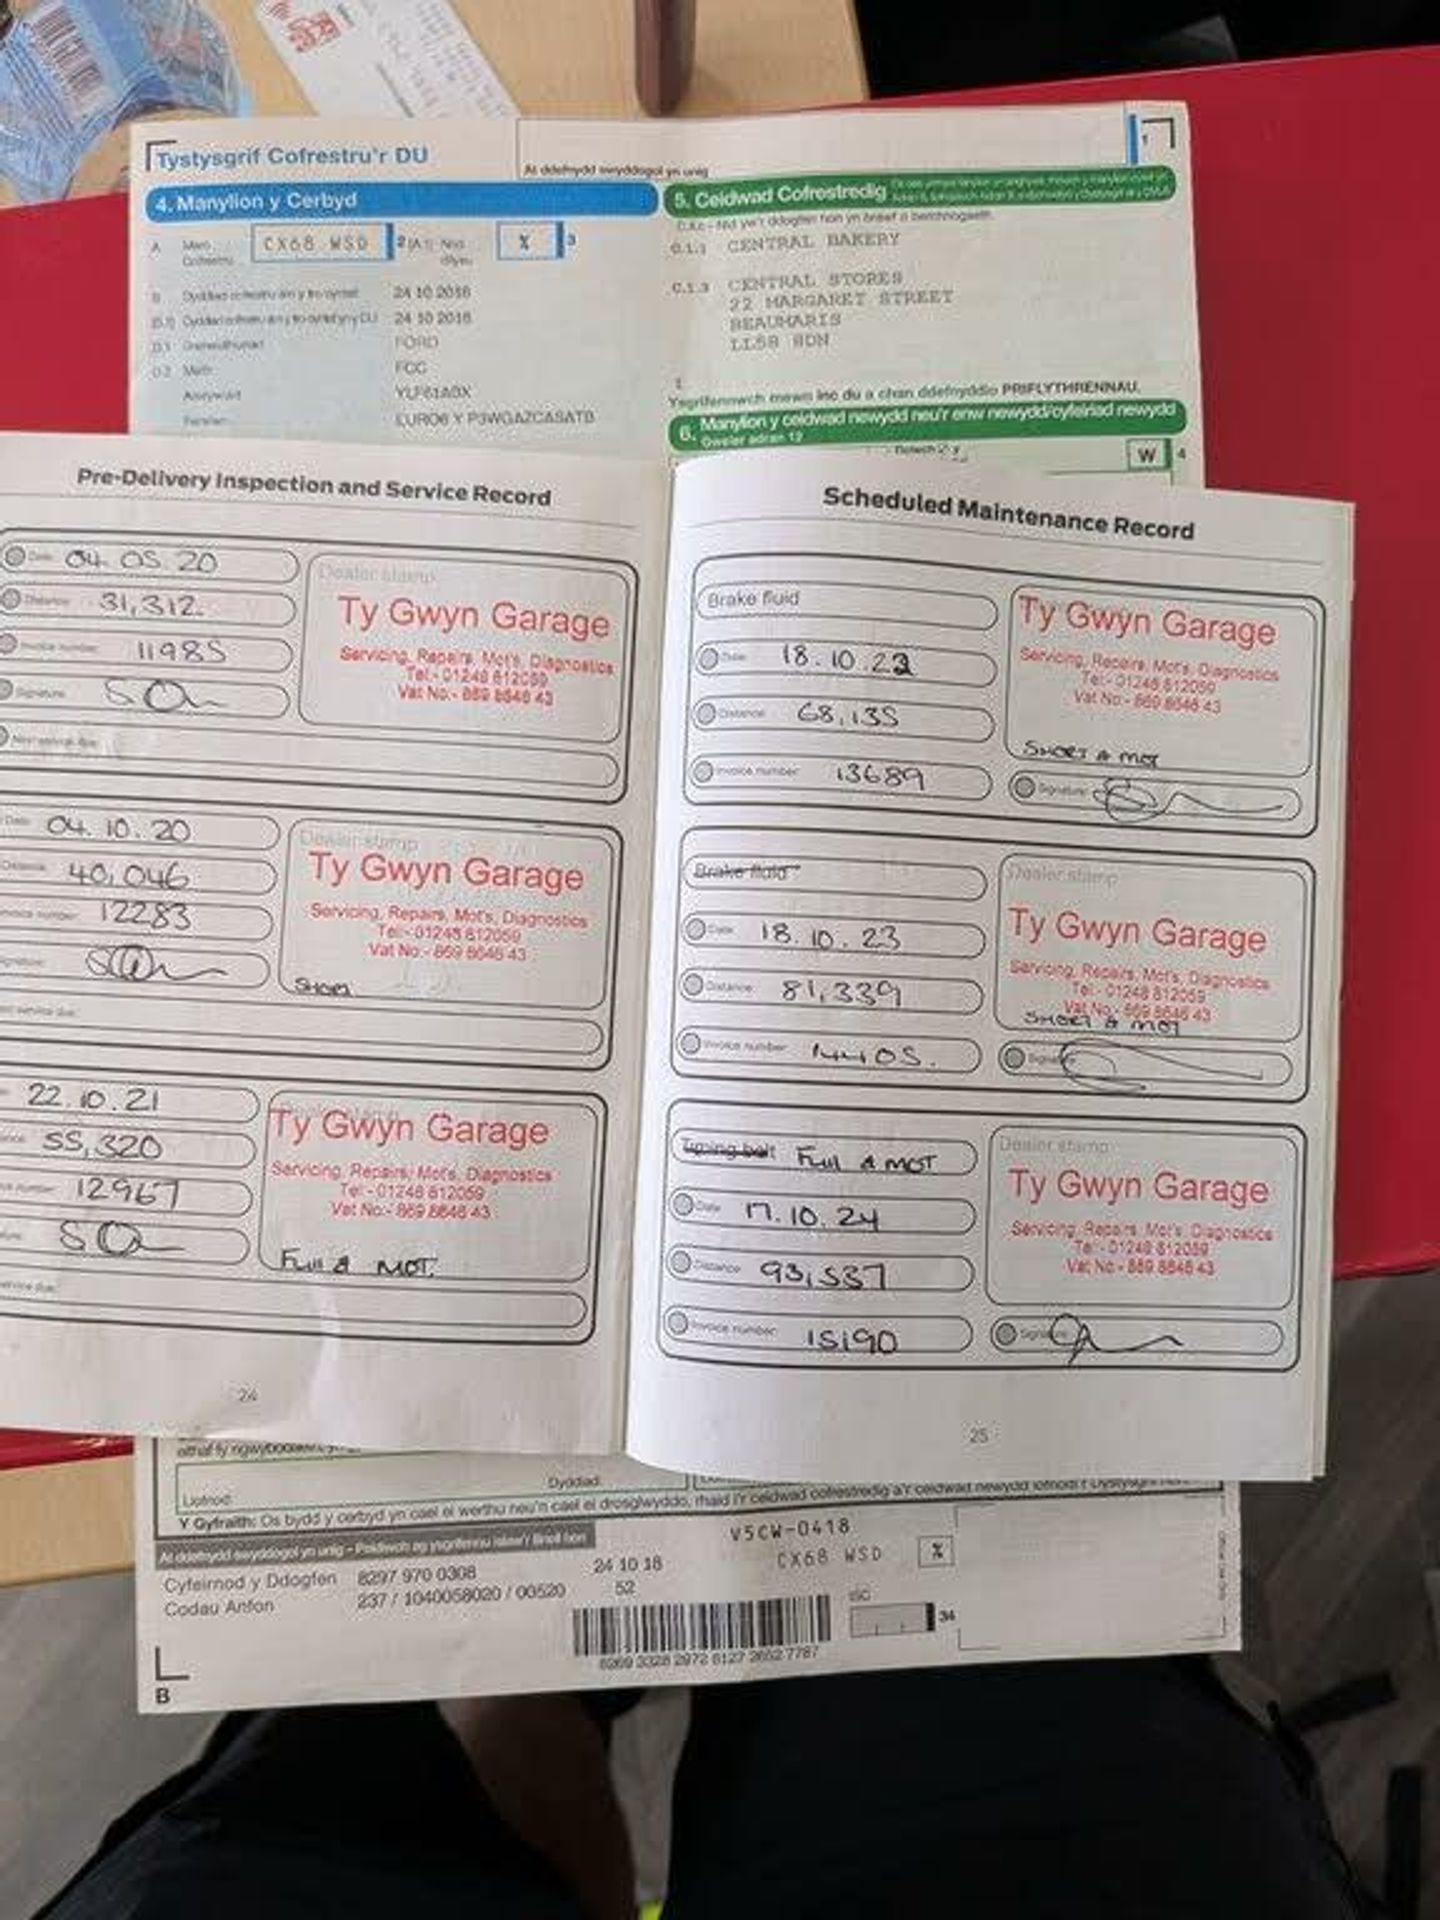 Tystysgrif Cofrestru'r DU
At ddefnydd swyddogol yn unig
1
4. Manylion y Cerbyd
A
CX68 WSD
2
%
3
B
24 10 2018
24 10 2018
D.1
FORD
D.2
Math
FCC
YLF61ABX
5. Ceidwad Cofrestredig
C.1.1 CENTRAL BAKERY
C.1.3 CENTRAL STORES
22 MARGARET STREET
BEAUMARIS
Ysgrifennwch mewn inc du a chan ddefnyddio PRIFLYTHRENNAU.
6. Manylion y ceidwad newydd neu'r enw newydd/cyfeiriad newydd
Gweler adran 12
W 4
Pre-Delivery Inspection and Service Record
Date 04.05.20
Distance 31,312
Invoice number 11985
Signature
Next service due:
Dealer stamp
Ty Gwyn Garage
Servicing, Repairs, Mot's, Diagnostics
Tel:- 01248 812059
Vat No:- 869 8646 43
Date 04.10.20
Distance 40,046
Invoice number 12283
Dealer stamp
Ty Gwyn Garage
Servicing, Repairs, Mot's, Diagnostics
Tel:- 01248 812059
Vat No:- 869 8646 43
SHORT
service due:
22.10.21
55,320
number 12967
Ty Gwyn Garage
Servicing, Repairs, Mot's, Diagnostics
Tel:- 01248 812059
Vat No:- 869 8646 43
FULL & MOT.
service due:
24
Scheduled Maintenance Record
Brake fluid
Date 18.10.22
Distance 68,135
Invoice number 13689
Ty Gwyn Garage
Servicing, Repairs, Mot's, Diagnostics
Tel:- 01248 812059
Vat No:- 869 8646 43
SHORT & MOT
Signature
Brake fluid
Date 18.10.23
Distance 81,339
Invoice number 14405.
Dealer stamp
Ty Gwyn Garage
Servicing, Repairs, Mot's, Diagnostics
Tel:- 01248 812059
Vat No:- 869 8646 43
SHORT & MOT
Signature
Timing belt FULL & MOT
Date 17.10.24
Distance 93,537
Invoice number 15190
Dealer stamp
Ty Gwyn Garage
Servicing, Repairs, Mot's, Diagnostics
Tel:- 01248 812059
Vat No:- 869 8646 43
Signature
25
Llofnod:
Dyddiad:
Y Gyfraith: Os bydd y cerbyd yn cael ei werthu neu'n cael ei drosglwyddo, rhaid i'r ceidwad cofrestredig a'r ceidwad newydd lofnodi'r Dystysgrif
Cyfeirnod y Ddogfen 8297 970 0308
Codau Anfon 237 / 1040058020 / 00520
24 10 18
52
V5CW-0418
CX68 WSD
%
34
B